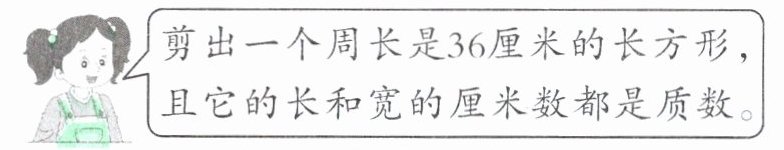 剪出一个周长是36厘米的长方形，
且它的长和宽的厘米数都是质数。